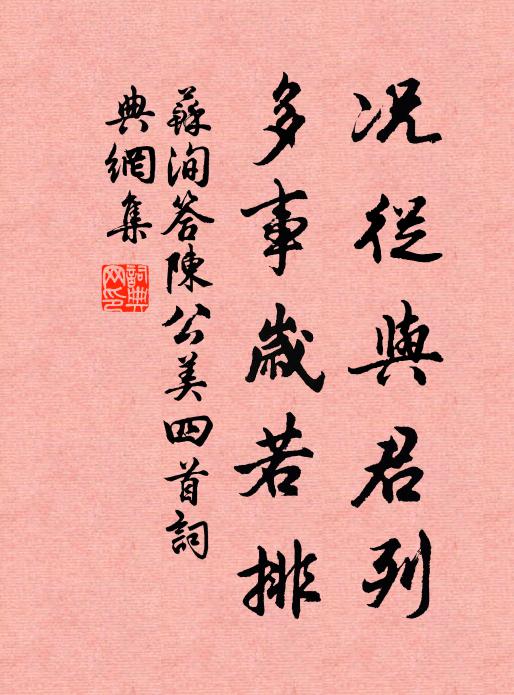 况從與君列
多事歲若排
蘇洵答陳公美四首詞
典網集
詞典網印